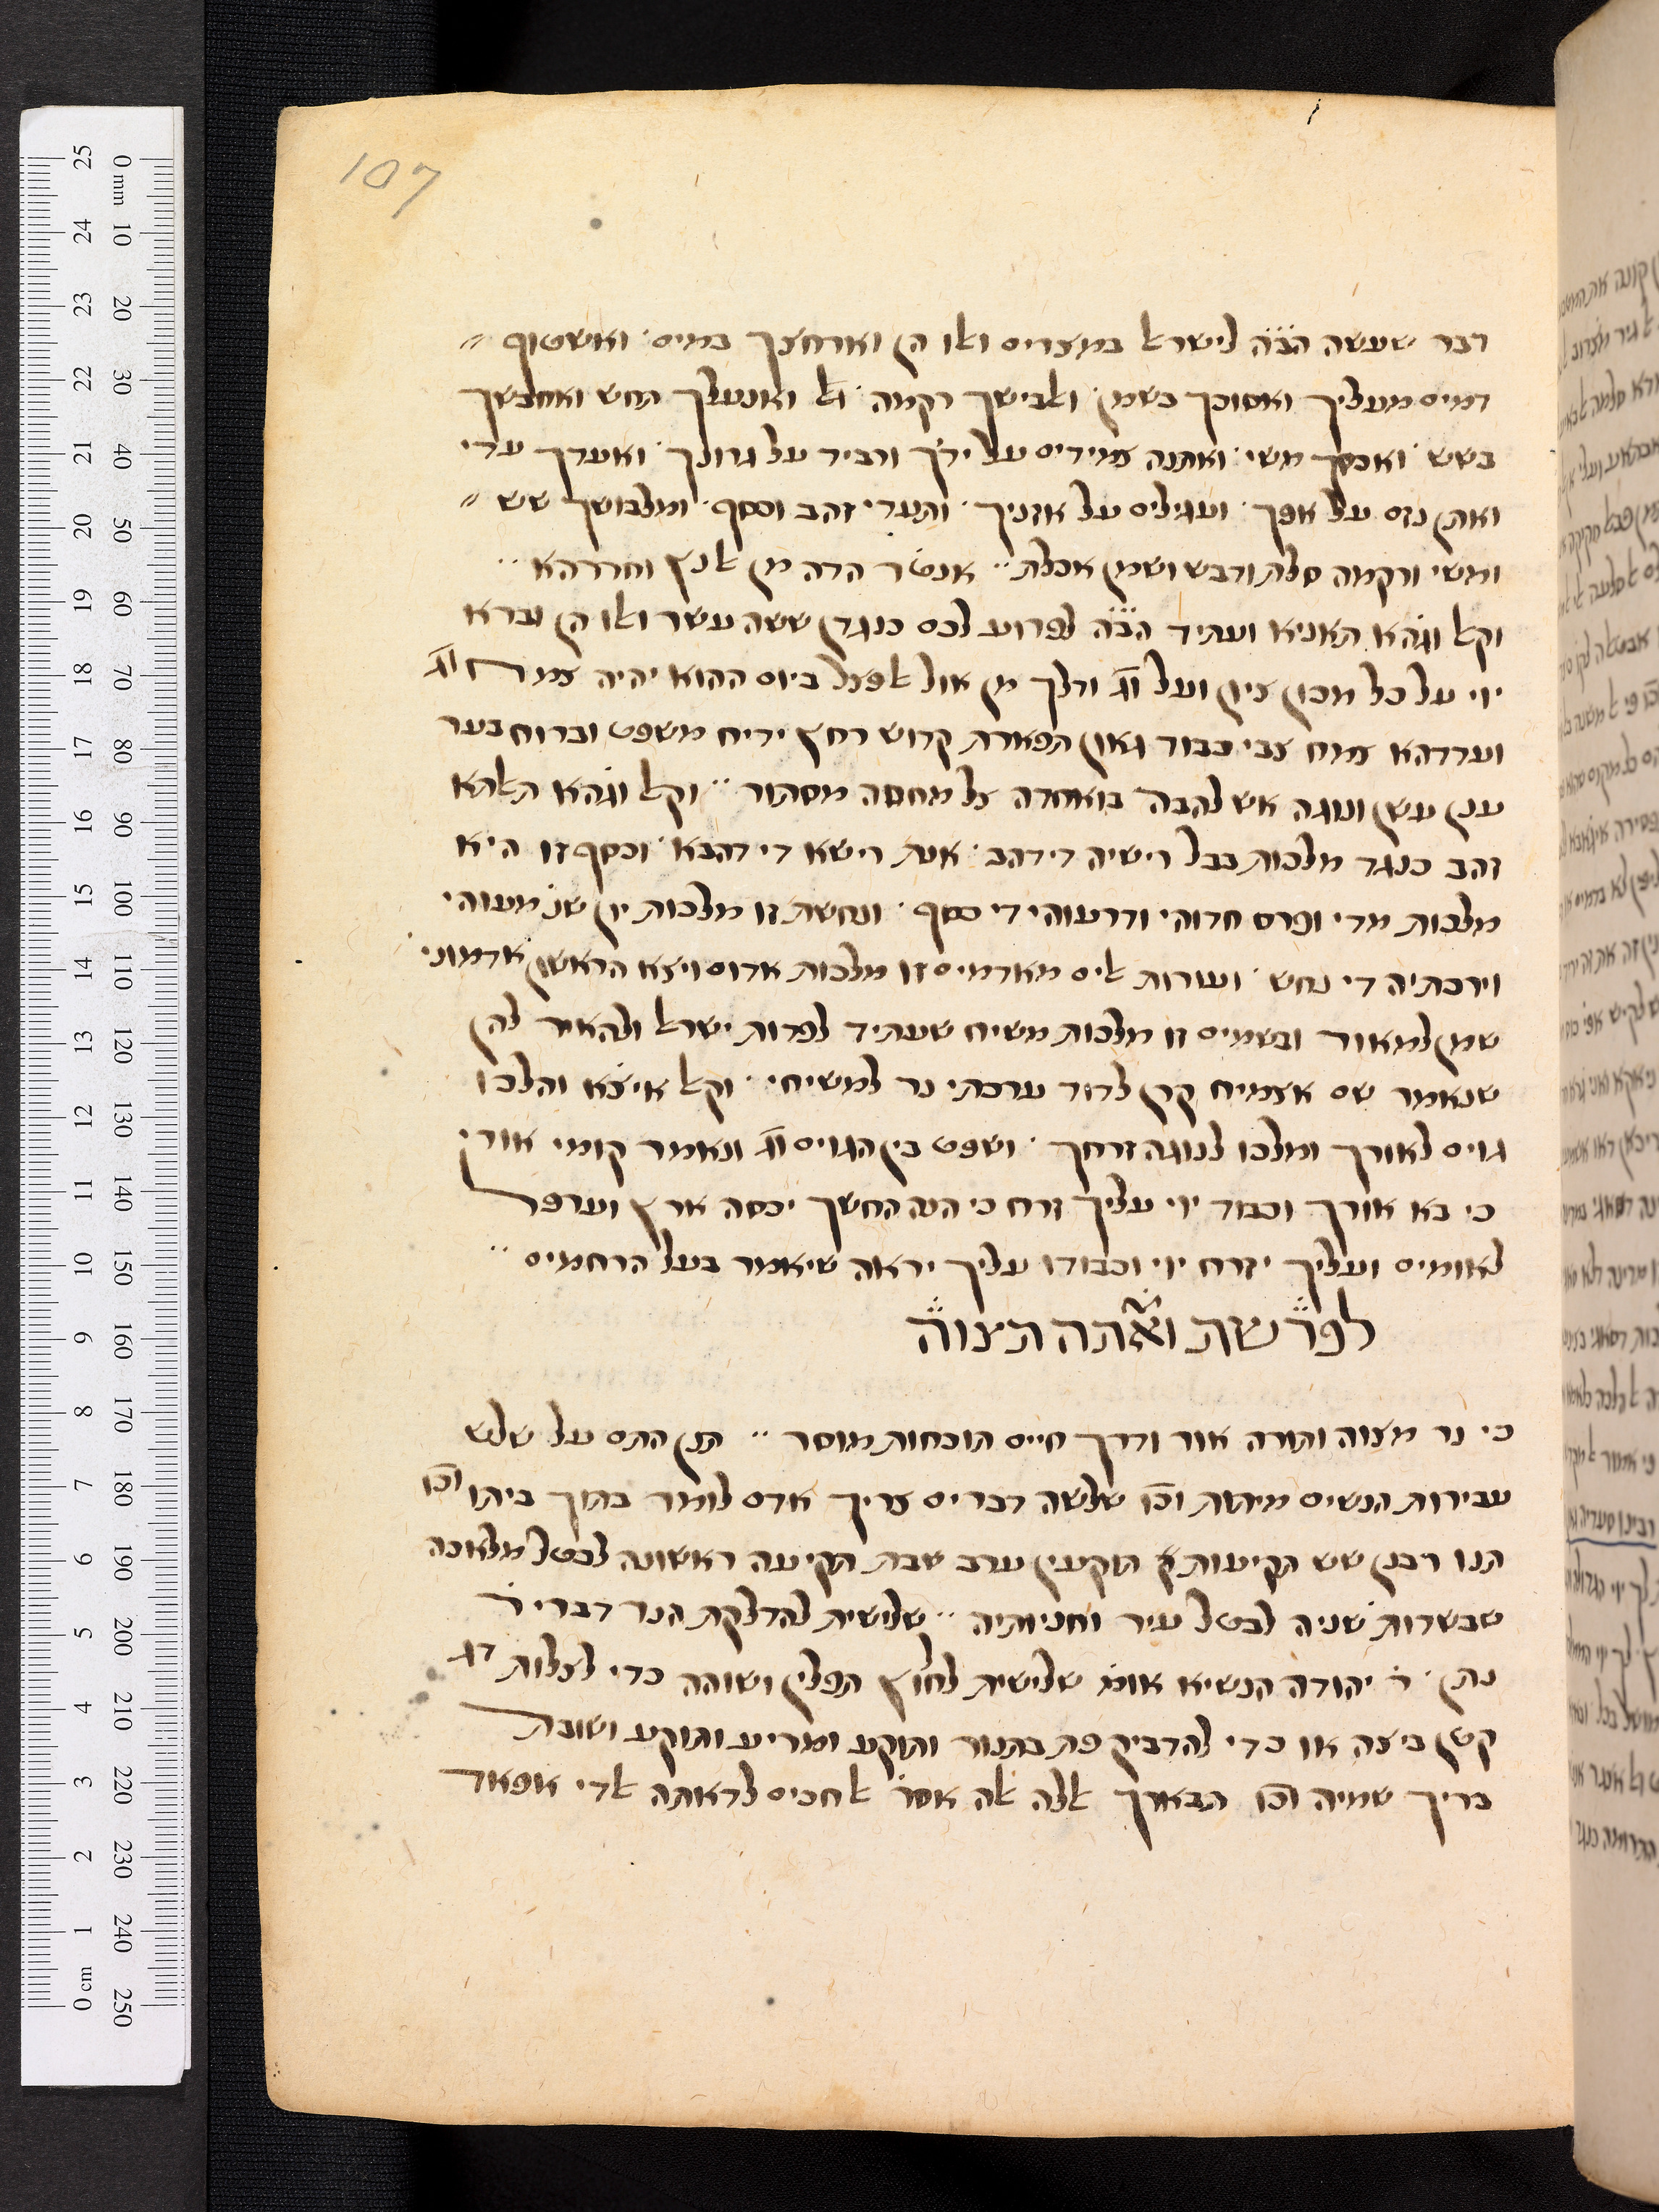 107
דבר שעשה הב̈ה̈ לישראל במצרים ואלו הן וארחצך במים ואשטוף
דמיס מעליך ואסוכך בשמן ואלבישך רקמה וג̇ ואנעלך תחש ואחבשך
בשש ואכסך משי ואתנה צמידים על ידך ורביד על גרונך ואעדך עדי
ואתן נזם על אפך ועגילים על אזניך ותעדי זהב וכסף ומלבושך שש
ומשי ורקמה סלת ודבש ושמן אכלת אנטר הדה מן אלנץ וחררהא
וקאל וגהא תאניא ועתיד הב̈ה̈ לפרוע לכם כנגדן ששה עשר ואלו הן וברא
יוי על כל מכון ציון ועל וג̇ ודלך מן אול אלפצל ביום ההוא יהיה צמח וג̇
ועדדהא צמח צבי כבוד גאון תפארת קדוש רחץ ידיח משפט וברוח בער
ענן עשן ונוגה אש להבה בואחדה צל מחסה מסתור וקאל וגהא תאלתא
זהב כנגד מלכות בבל רישיה די דהב אנת רישא די דהבא וכסף זו היא
מלכות מדי ופרס חדוהי ודרעוהי די כסף ונחשת זו מלכות יון שנ̇ מעוהי
וירכתיה די נחש ועורות אילים מאדמים זו מלכות אדום ויצא הראשון אדמוני
שמן למאור ובשמים זו מלכות משיח שעתיד לפדות ישראל ולהאיר להן
שנאמר שם אצמיח קרן לדוד ערכתי נר למשיחי וקאל איצ̇א והלכו
גוים לאורך ומלכו לנוגה זרחך ושפט בין הגוים וג̇ ונאמר קומי אורי
כי בא אורך וכבוד יוי עליך זרח כי הנה החשך יכסה ארץ וערפל
לאומים ועליך יזרח יוי וכבודו עליך יראה שיאמר בעל הרחמים
לפרשת ואתה תצוה
כי נר מצוה ותורה אור ודרך חיים תוכחות מוסר תנן התם על שלש
עבירות הנשים מיתות וכו̇ שלשה דברים צריך אדם לומר בתוך ביתו וכו̇
תנו רבנן שש תקיעות תוקעין ערב שבת תקיעה ראשונה לבטל מלאכה
שבשדות שניה לבטל עיר וחניותיה שלישית להדלקת הנר דברי ר̇
נתן ר̇ יהודה הנשיא אומ̇ שלישית לחלוץ תפלין ושוהה כדי לצלות דג
קטן ביצה או כדי להדביק פת בתנור ותוקע ומריע ותוקע ושובת
בריך שמיה וכו̇ תבארך אללה אלאה אסר אלחכים לדאתה אלדי אפאד